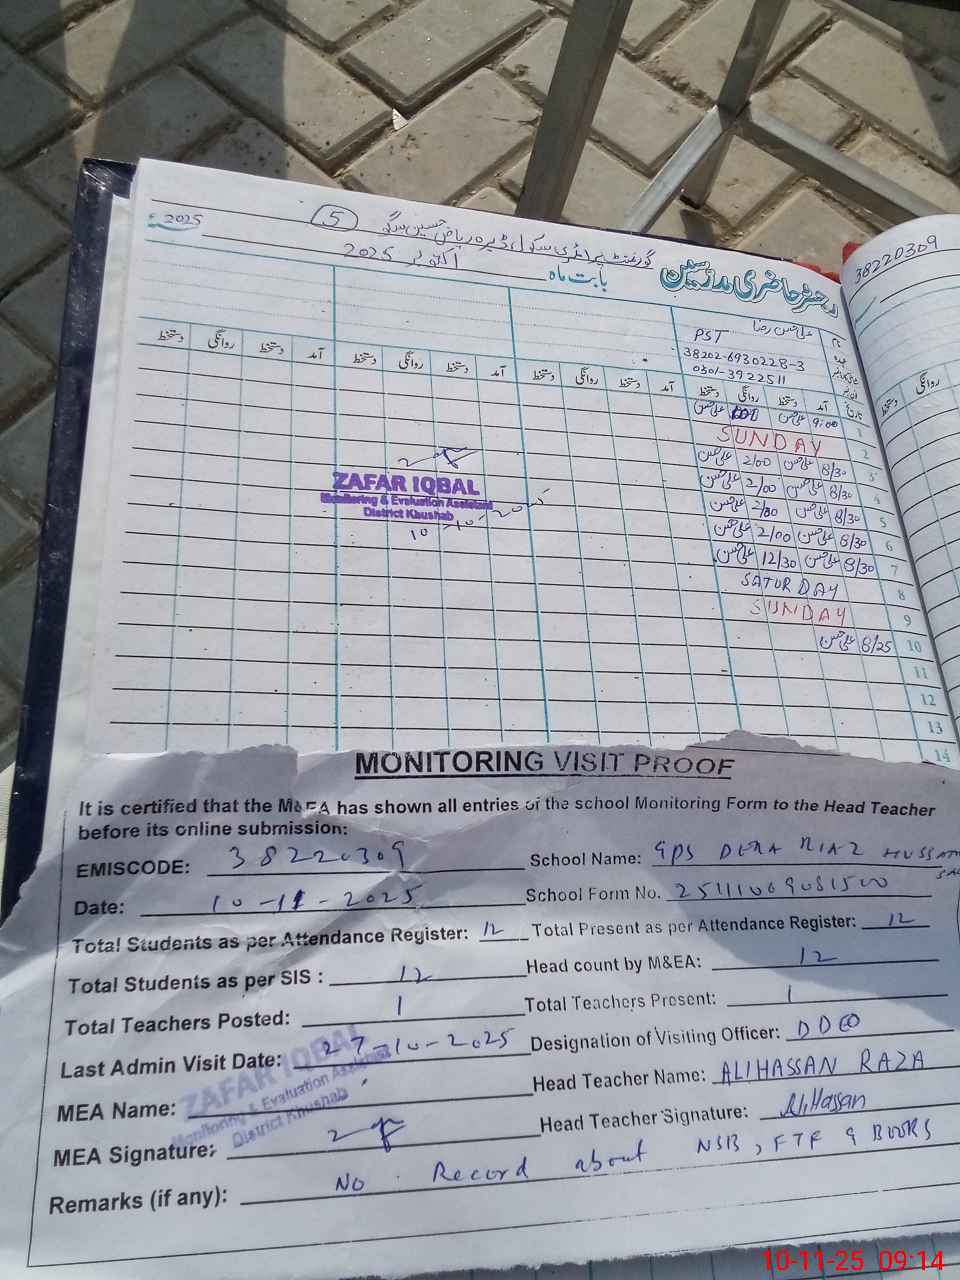 2025ء
5
گورنمنٹ پرائمری سکول ڈیرہ ریاض حسین سگو
38220309
رجسٹر حاضری مدرسین
بابت ماہ اکتوبر 2025
نام علی حسن رضا
عہدہ PST
38202-6930228-3
0301-3922511
تاریخ آمد دستخط روانگی دستخط آمد دستخط روانگی دستخط آمد دستخط روانگی دستخط آمد دستخط روانگی دستخط
روانگی دستخط
1 9:00 علی حسن علی حسن
2 SUNDAY
3 8/30 علی حسن 2/00 علی حسن
4 8/30 علی حسن 2/00 علی حسن
5 8/30 علی حسن 2/00 علی حسن
6 8/30 علی حسن 2/00 علی حسن
7 8/30 علی حسن 12/30 علی حسن
8 SATURDAY
9 SUNDAY
10 8/25 علی حسن
11
12
13
14
ZAFAR IQBAL
Monitoring & Evaluation Assistant
District Khushab
MONITORING VISIT PROOF
It is certified that the M&EA has shown all entries of the school Monitoring Form to the Head Teacher
before its online submission:
EMISCODE: 38220309 School Name: GPS DERA RIAZ HUSSAIN
Date: 10-11-2025 School Form No. 25111009081500
Total Students as per Attendance Register: 12 Total Present as per Attendance Register: 12
Total Students as per SIS : 12 Head count by M&EA: 12
Total Teachers Posted: 1 Total Teachers Present: 1
Last Admin Visit Date: 27-10-2025 Designation of Visiting Officer: DDEO
MEA Name: ZAFAR IQBAL Head Teacher Name: ALI HASSAN RAZA
Monitoring & Evaluation Assistant
District Khushab
MEA Signature: Head Teacher Signature: Ali Hassan
Remarks (if any): No Record about NSB, FTF & BOOKS
10-11-25 09:14